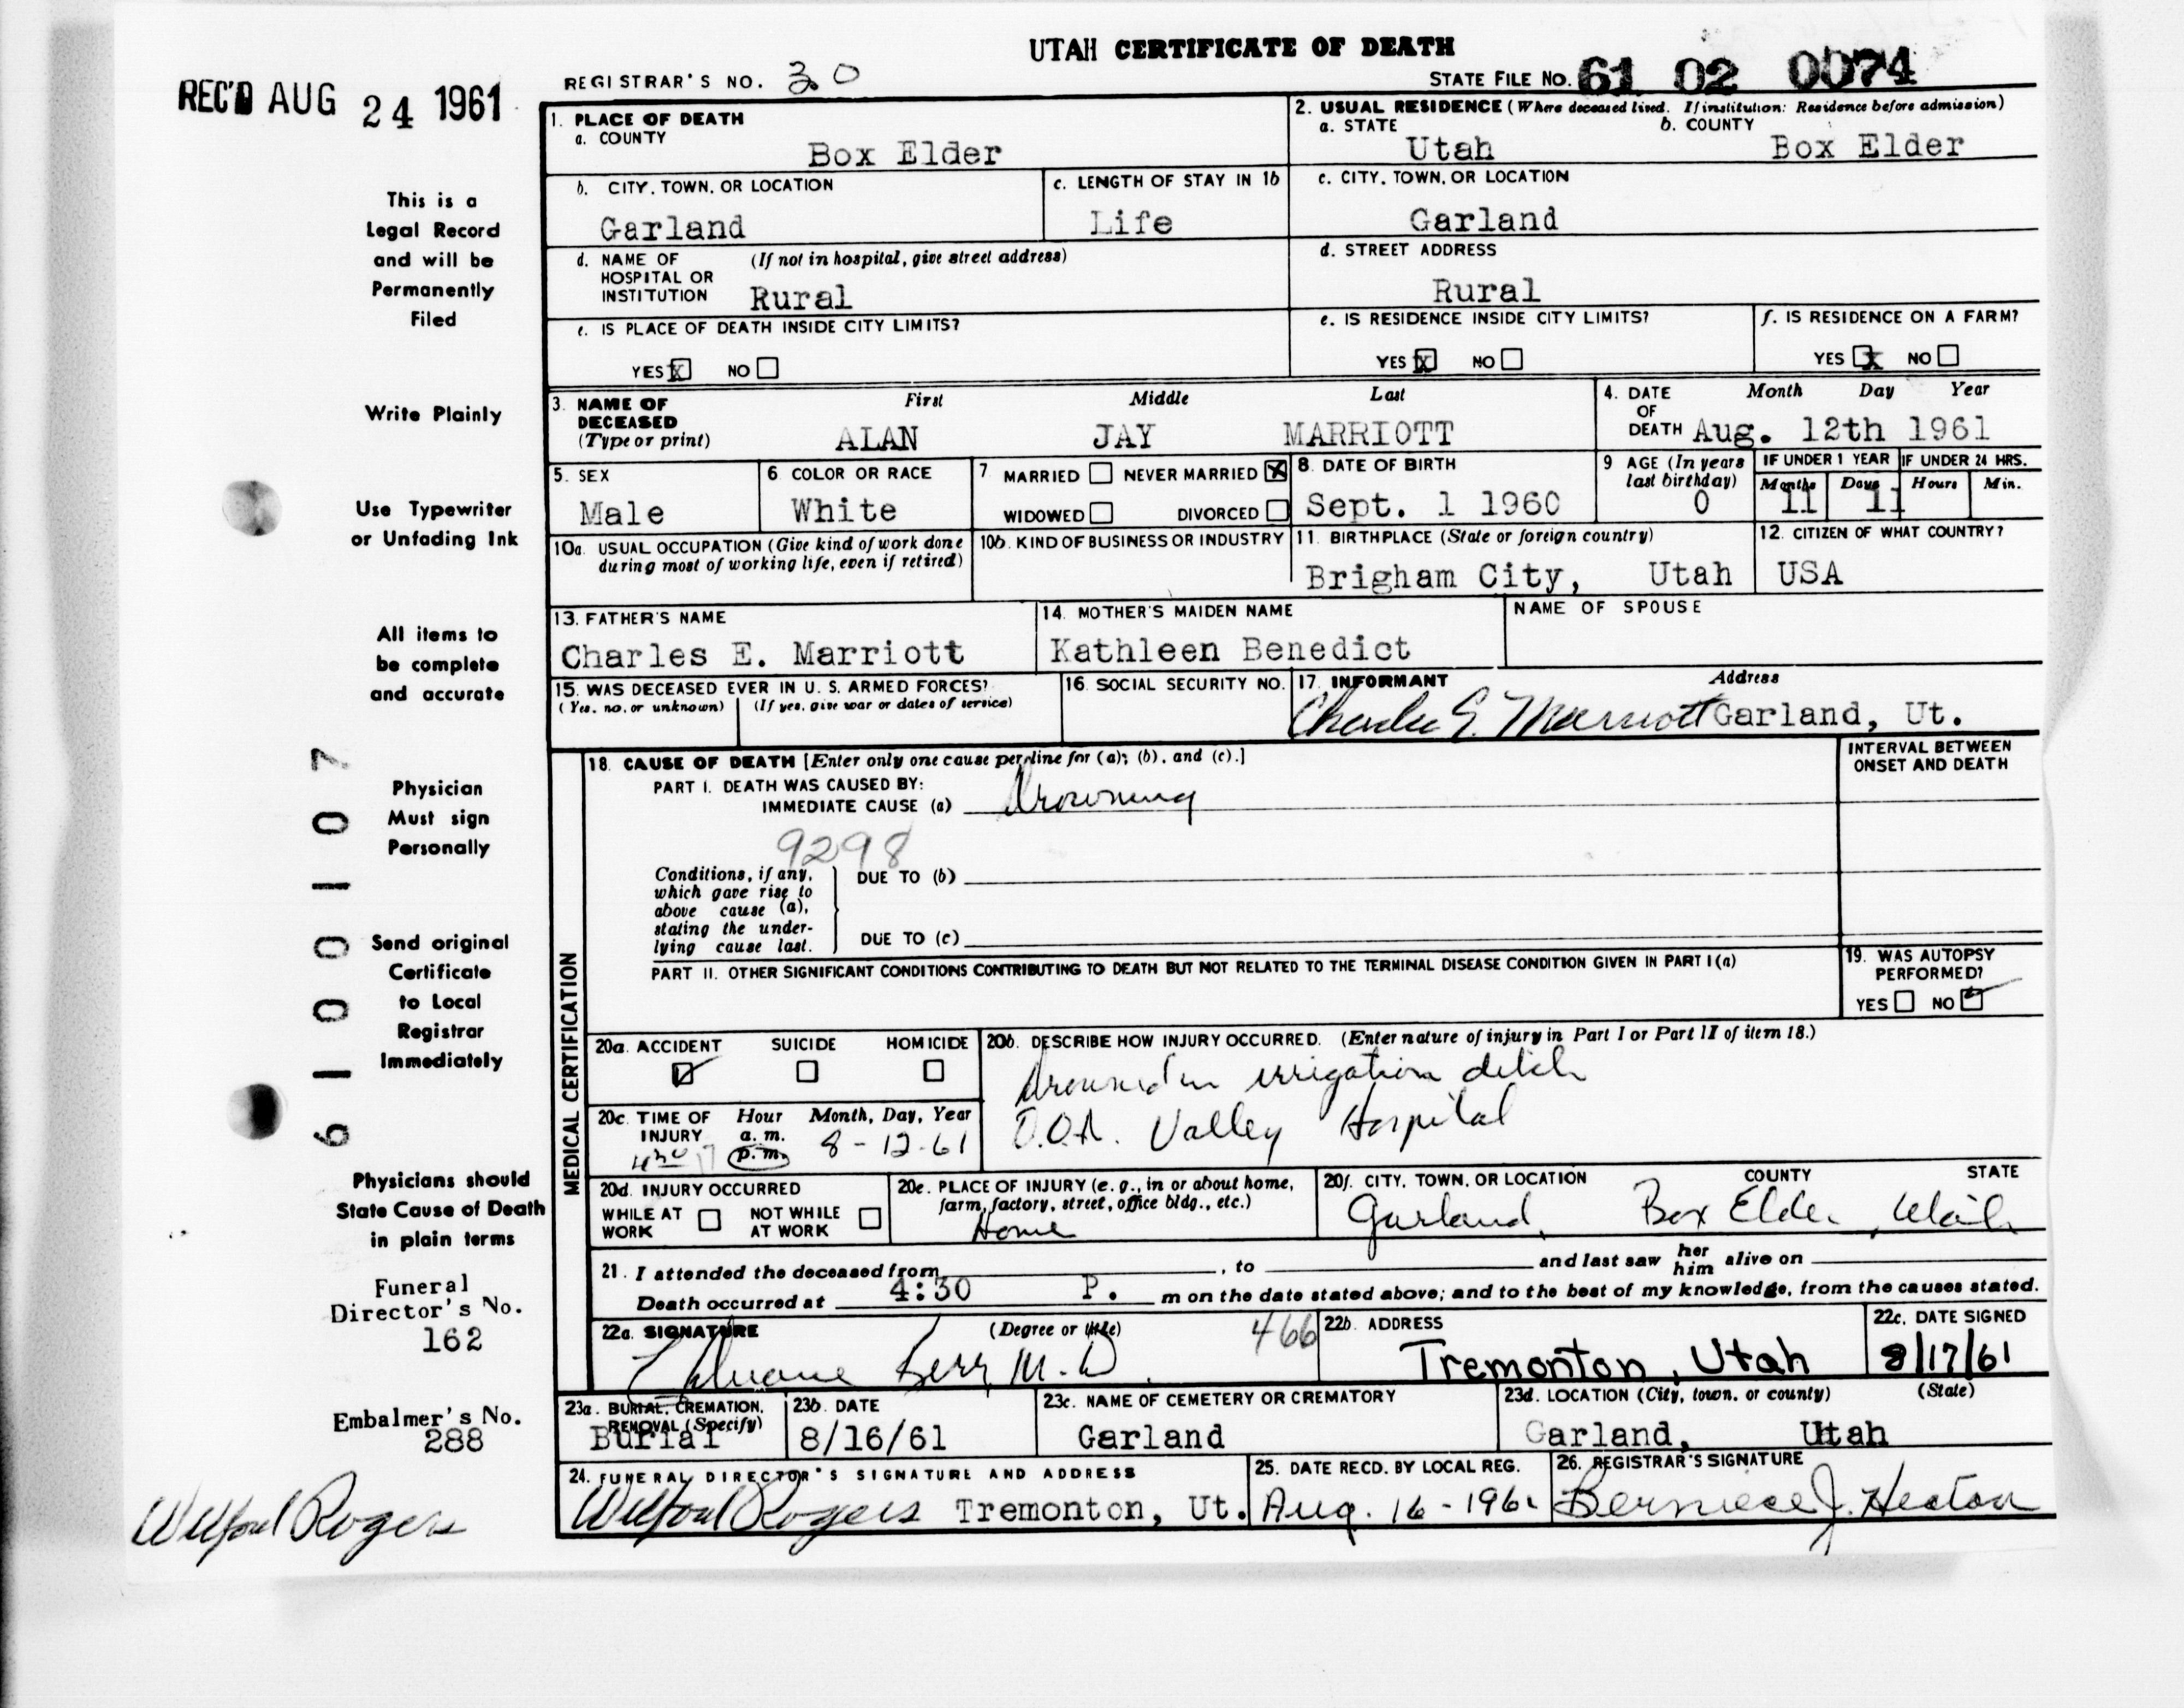 UTAH CERTIFICATE OF DEATH
REC'D AUG 24 1961
REGISTRAR'S NO. 30
STATE FILE NO. 61 02 0074
This is a
Legal Record
and will be
Permanently
Filed
Write Plainly
Use Typewriter
or Unfading Ink
All items to
be complete
and accurate
Physician
Must sign
Personally
Send original
Certificate
to Local
Registrar
Immediately
Physicians should
State Cause of Death
in plain terms
Funeral
Director's No.
162
Embalmer's No.
288
Wilford Rogers
61001107
1. PLACE OF DEATH
a. COUNTY
Box Elder
2. USUAL RESIDENCE (Where deceased lived. If institution: Residence before admission)
a. STATE b. COUNTY
Utah Box Elder
b. CITY, TOWN, OR LOCATION
Garland
c. LENGTH OF STAY IN 1b
Life
c. CITY, TOWN, OR LOCATION
Garland
d. NAME OF (If not in hospital, give street address)
HOSPITAL OR
INSTITUTION Rural
d. STREET ADDRESS
Rural
e. IS PLACE OF DEATH INSIDE CITY LIMITS?
YES X NO
e. IS RESIDENCE INSIDE CITY LIMITS?
YES X NO
f. IS RESIDENCE ON A FARM?
YES X NO
3. NAME OF First Middle Last
DECEASED
(Type or print) ALAN JAY MARRIOTT
4. DATE Month Day Year
OF
DEATH Aug. 12th 1961
5. SEX
Male
6 COLOR OR RACE
White
7 MARRIED NEVER MARRIED X
WIDOWED DIVORCED
8. DATE OF BIRTH
Sept. 1 1960
9 AGE (In years
last birthday)
0
IF UNDER 1 YEAR IF UNDER 24 HRS.
Months Days Hours Min.
11 11
10a. USUAL OCCUPATION (Give kind of work done
during most of working life, even if retired)
10b. KIND OF BUSINESS OR INDUSTRY
11. BIRTHPLACE (State or foreign country)
Brigham City, Utah
12. CITIZEN OF WHAT COUNTRY?
USA
13. FATHER'S NAME
Charles E. Marriott
14. MOTHER'S MAIDEN NAME
Kathleen Benedict
NAME OF SPOUSE
15. WAS DECEASED EVER IN U. S. ARMED FORCES?
(Yes, no, or unknown) (If yes, give war or dates of service)
16. SOCIAL SECURITY NO.
17. INFORMANT Address
Charles E. Marriott Garland, Ut.
MEDICAL CERTIFICATION
18. CAUSE OF DEATH [Enter only one cause per line for (a); (b), and (c).]
INTERVAL BETWEEN
ONSET AND DEATH
PART I. DEATH WAS CAUSED BY:
IMMEDIATE CAUSE (a) Drowning
9298
Conditions, if any,
which gave rise to
above cause (a),
stating the under-
lying cause last.
DUE TO (b)
DUE TO (c)
PART II. OTHER SIGNIFICANT CONDITIONS CONTRIBUTING TO DEATH BUT NOT RELATED TO THE TERMINAL DISEASE CONDITION GIVEN IN PART I (a)
19. WAS AUTOPSY
PERFORMED?
YES NO
20a. ACCIDENT SUICIDE HOMICIDE
20b. DESCRIBE HOW INJURY OCCURRED. (Enter nature of injury in Part I or Part II of item 18.)
Drowned in irrigation ditch
D.O.A. Valley Hospital
20c. TIME OF Hour Month, Day, Year
INJURY a. m.
4 30 p. m. 8-12-61
20d. INJURY OCCURRED
WHILE AT WORK NOT WHILE AT WORK
20e. PLACE OF INJURY (e. g., in or about home,
farm, factory, street, office bldg., etc.)
Home
20f. CITY, TOWN, OR LOCATION COUNTY STATE
Garland, Box Elder, Utah
21. I attended the deceased from , to and last saw her him alive on
Death occurred at 4:30 P. m on the date stated above; and to the best of my knowledge, from the causes stated.
22a. SIGNATURE (Degree or title)
M.D. 466
22b. ADDRESS
Tremonton, Utah
22c. DATE SIGNED
8/17/61
23a. BURIAL, CREMATION,
REMOVAL (Specify)
Burial
23b. DATE
8/16/61
23c. NAME OF CEMETERY OR CREMATORY
Garland
23d. LOCATION (City, town, or county) (State)
Garland, Utah
24. FUNERAL DIRECTOR'S SIGNATURE AND ADDRESS
Wilford Rogers Tremonton, Ut.
25. DATE RECD. BY LOCAL REG.
Aug. 16-1961
26. REGISTRAR'S SIGNATURE
Berniece J. Heaton